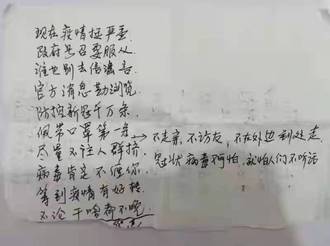 现在疫情挺严重
政府号召要服从
谁也别去传谣言
官方消息勤浏览
防控新冠千万条
佩带口罩第一条
尽量不往人群挤
病毒肯定不催你
等到疫情有好转
不论干啥都不晚
不走亲，不访友，不在外边到处走
冠状病毒不可怕，就怕人们不听话